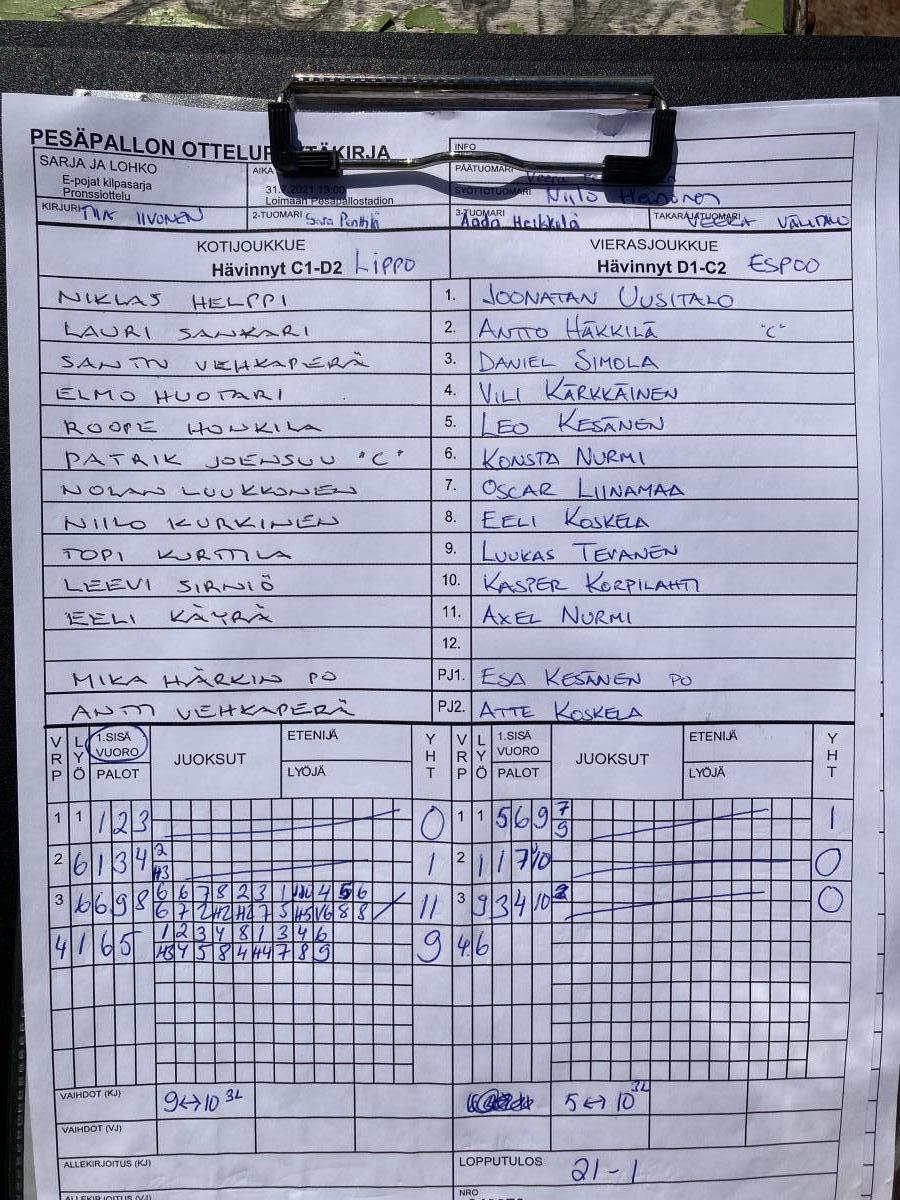 PESÄPALLON OTTELUPÖYTÄKIRJA
INFO
SARJA JA LOHKO
E-pojat kilpasarja
Pronssiottelu
AIKA
31.7.2021 13:00
Loimaan Pesäpallostadion
PÄÄTUOMARI Veera
SYÖTTÖTUOMARI Niilo Heinonen
KIRJURI TIIA IIVONEN
2-TUOMARI Sara Penttilä
3-TUOMARI Aada Heikkilä
TAKARAJATUOMARI VEERA VÄLITALO
KOTIJOUKKUE
Hävinnyt C1-D2 LIPPO
VIERASJOUKKUE
Hävinnyt D1-C2 ESPOO
NIKLAS HELPPI 1. JOONATAN UUSITALO
LAURI SANKARI 2. ANTTO HÄKKILÄ "C"
SANTTU VEHKAPERÄ 3. DANIEL SIMOLA
ELMO HUOTARI 4. VILI KÄRKKÄINEN
ROOPE HONKILA 5. LEO KESÄNEN
PATRIK JOENSUU "C" 6. KONSTA NURMI
NOLAN LUUKKONEN 7. OSCAR LIINAMAA
NIILO KURKINEN 8. EELI KOSKELA
TOPI KURTTILA 9. LUUKAS TEVANEN
LEEVI SIRNIÖ 10. KASPER KORPILAHTI
EELI KÄYRÄ 11. AXEL NURMI
12.
MIKA HÄRKIN PO PJ1. ESA KESÄNEN PO
ANTTI VEHKAPERÄ PJ2. ATTE KOSKELA
VRP LYÖ 1.SISÄ VUORO PALOT JUOKSUT ETENIJÄ LYÖJÄ YHT VRP LYÖ 1.SISÄ VUORO PALOT JUOKSUT ETENIJÄ LYÖJÄ YHT
1 1 1 2 3 0 1 1 5 6 9 7 1
9
2 6 1 3 4 2 1 2 1 1 7 10 0
H3
3 6 6 9 8 6 6 7 8 2 3 1 4 5 6 11 3 9 3 4 10 0
6 7 2 H2 H2 7 5 H5 V6 8 8
4 1 6 5 1 2 3 4 8 1 3 4 6 9 4 6
H3 4 5 8 4 H4 7 8 9
VAIHDOT (KJ) 9↔10 3L 5↔10 3L
VAIHDOT (VJ)
ALLEKIRJOITUS (KJ) LOPPUTULOS 21-1
ALLEKIRJOITUS (VJ) NRO